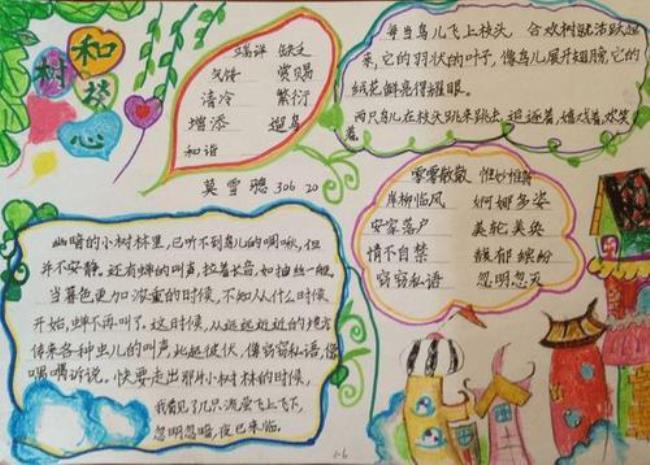 和
树
谈
心
端详 缺乏
气馁 赏赐
清冷 繁衍
增添 逗乌
和谐
莫雪聪 306 20
每当鸟儿飞上枝头,合欢树就活跃起
来,它的羽状的叶子,像鸟儿展开翅膀,它的
绒花鲜亮得耀眼。
两只鸟儿在枝头跳来跳去,追逐着,嬉戏着,欢笑
着。
零零散散 惟妙惟肖
岸柳临风 婀娜多姿
安家落户 美轮美奂
情不自禁 馥郁缤纷
窃窃私语 忽明忽灭
幽暗的小树林里,已听不到鸟儿的啁啾,但
并不安静,还有蝉的叫声,拉着长音,如抽丝一般。
当暮色更加浓重的时候,不知从什么时候
开始,蝉不再叫了。这时候,从远远近近的地方
传来各种虫儿的叫声,此起彼伏,像窃窃私语,像
喁喁诉说。快要走出那片小树林的时候,
我看见了几只流萤飞上飞下,
忽明忽暗,夜已来临。